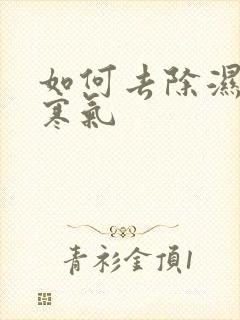 如何去除濕
寒氣
青衫金頂1